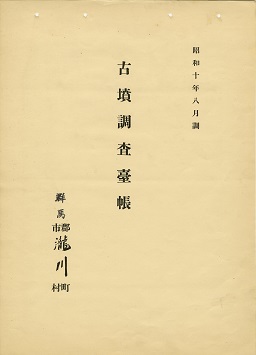 昭和十年八月調
古墳調査臺帳
群馬郡市瀧川町村